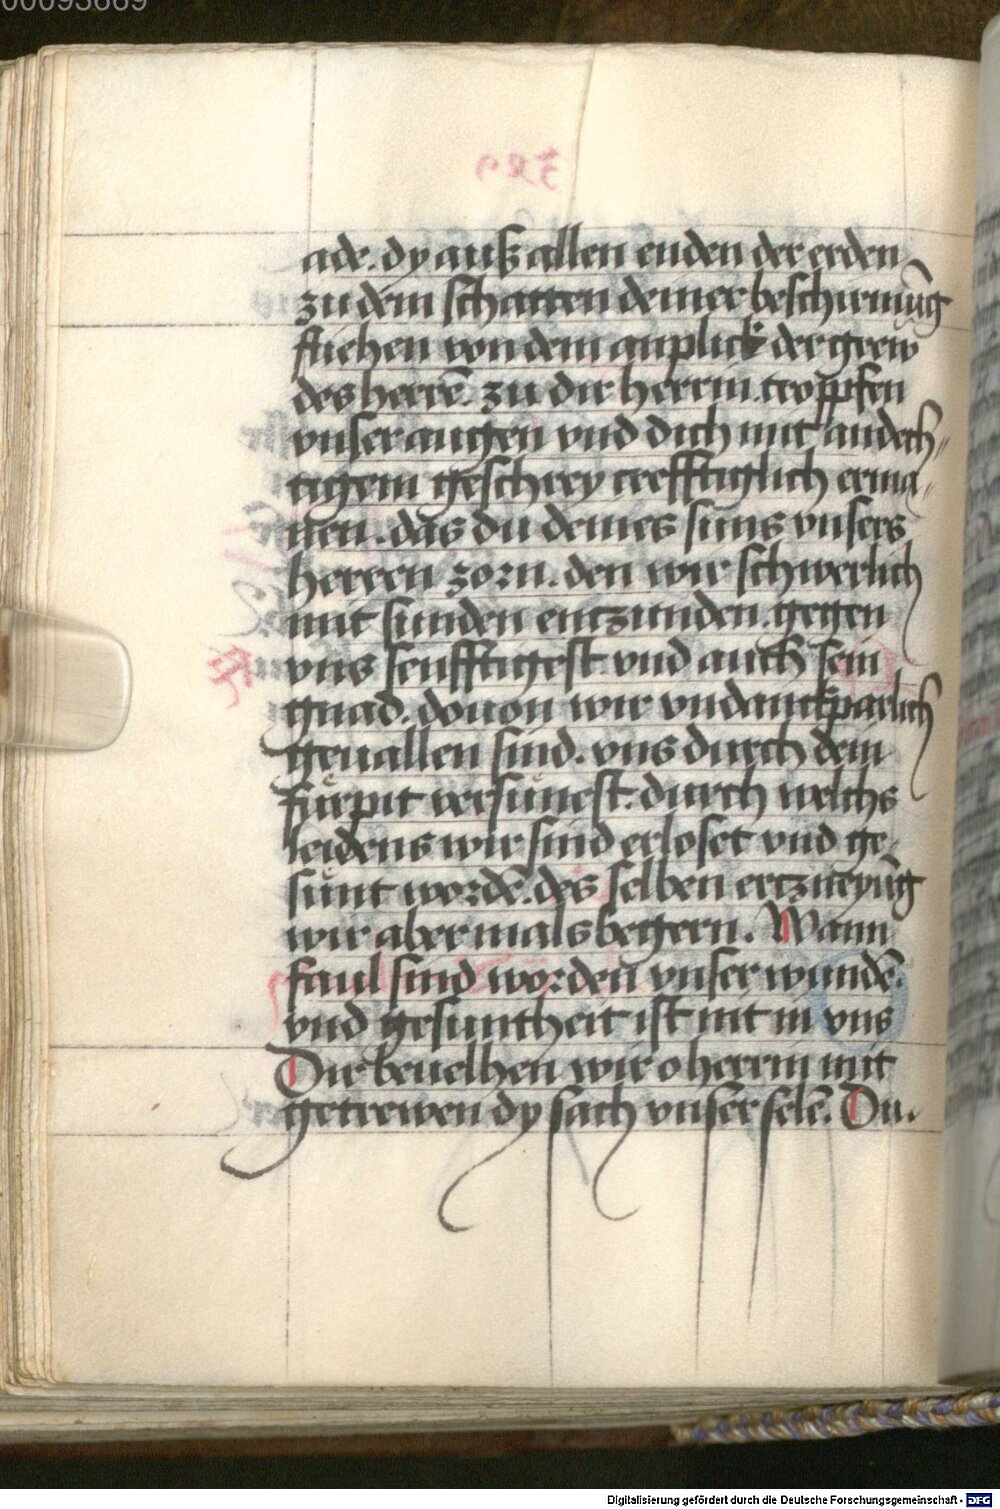 ade. dy auß allen enden der erden
zu dem schatten deiner beschirmūg
fliehen von dem anplick der grew
des herrē. zu dir herrin. tropffen
vnser augen vnd dich mit andech
tigem geschrey crefftiglich erma
nen. das du deines suns vnsers
herren zorn. den wir schwerlich
mit sunden entzunden. gegen
vns senfftigest vnd auch sein
gnad. douon wir vndanckparlich
geuallen sind. vns durch dein
fürpit versünest. durch welchs
leidens wir sind erloset vnd ge
sünt wordē. des selben ertzneyūg
wir abermals begern. Wann
faul sind worden vnser wundē.
vnd gesuntheit ist nit in vns
Dir beuelhen wir o herrin mit
getrewen dy sach vnser selē. Du.
Digitalisierung gefördert durch die Deutsche Forschungsgemeinschaft - DFG